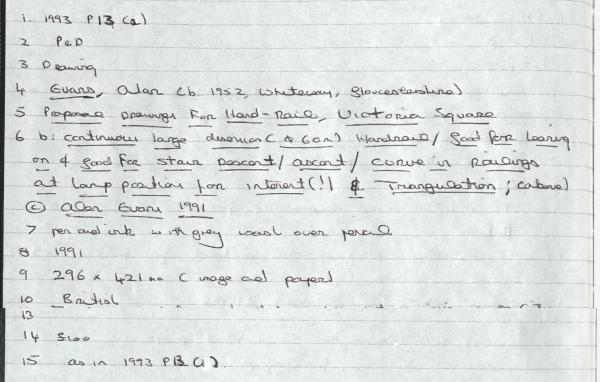 1. 1993 P13 (2)
2 P&D
3 Drawing
4 Evans, Alan (b 1952, Whiteway, Gloucestershire)
5 Proposal Drawings For Hand-Rails, Victoria Square
6 b: continuous large dimension ( 60m) Handrail / good for leaning
on & good for stair Descent / ascent / curve in Railings
at lamp position for interest (!) & Triangulation; (above)
© Alan Evans 1991
7 pen and ink with grey wash over pencil
8 1991
9 296 x 421 mm (image and paper)
10 British
13
14 £100
15 as in 1993 P13 (1).